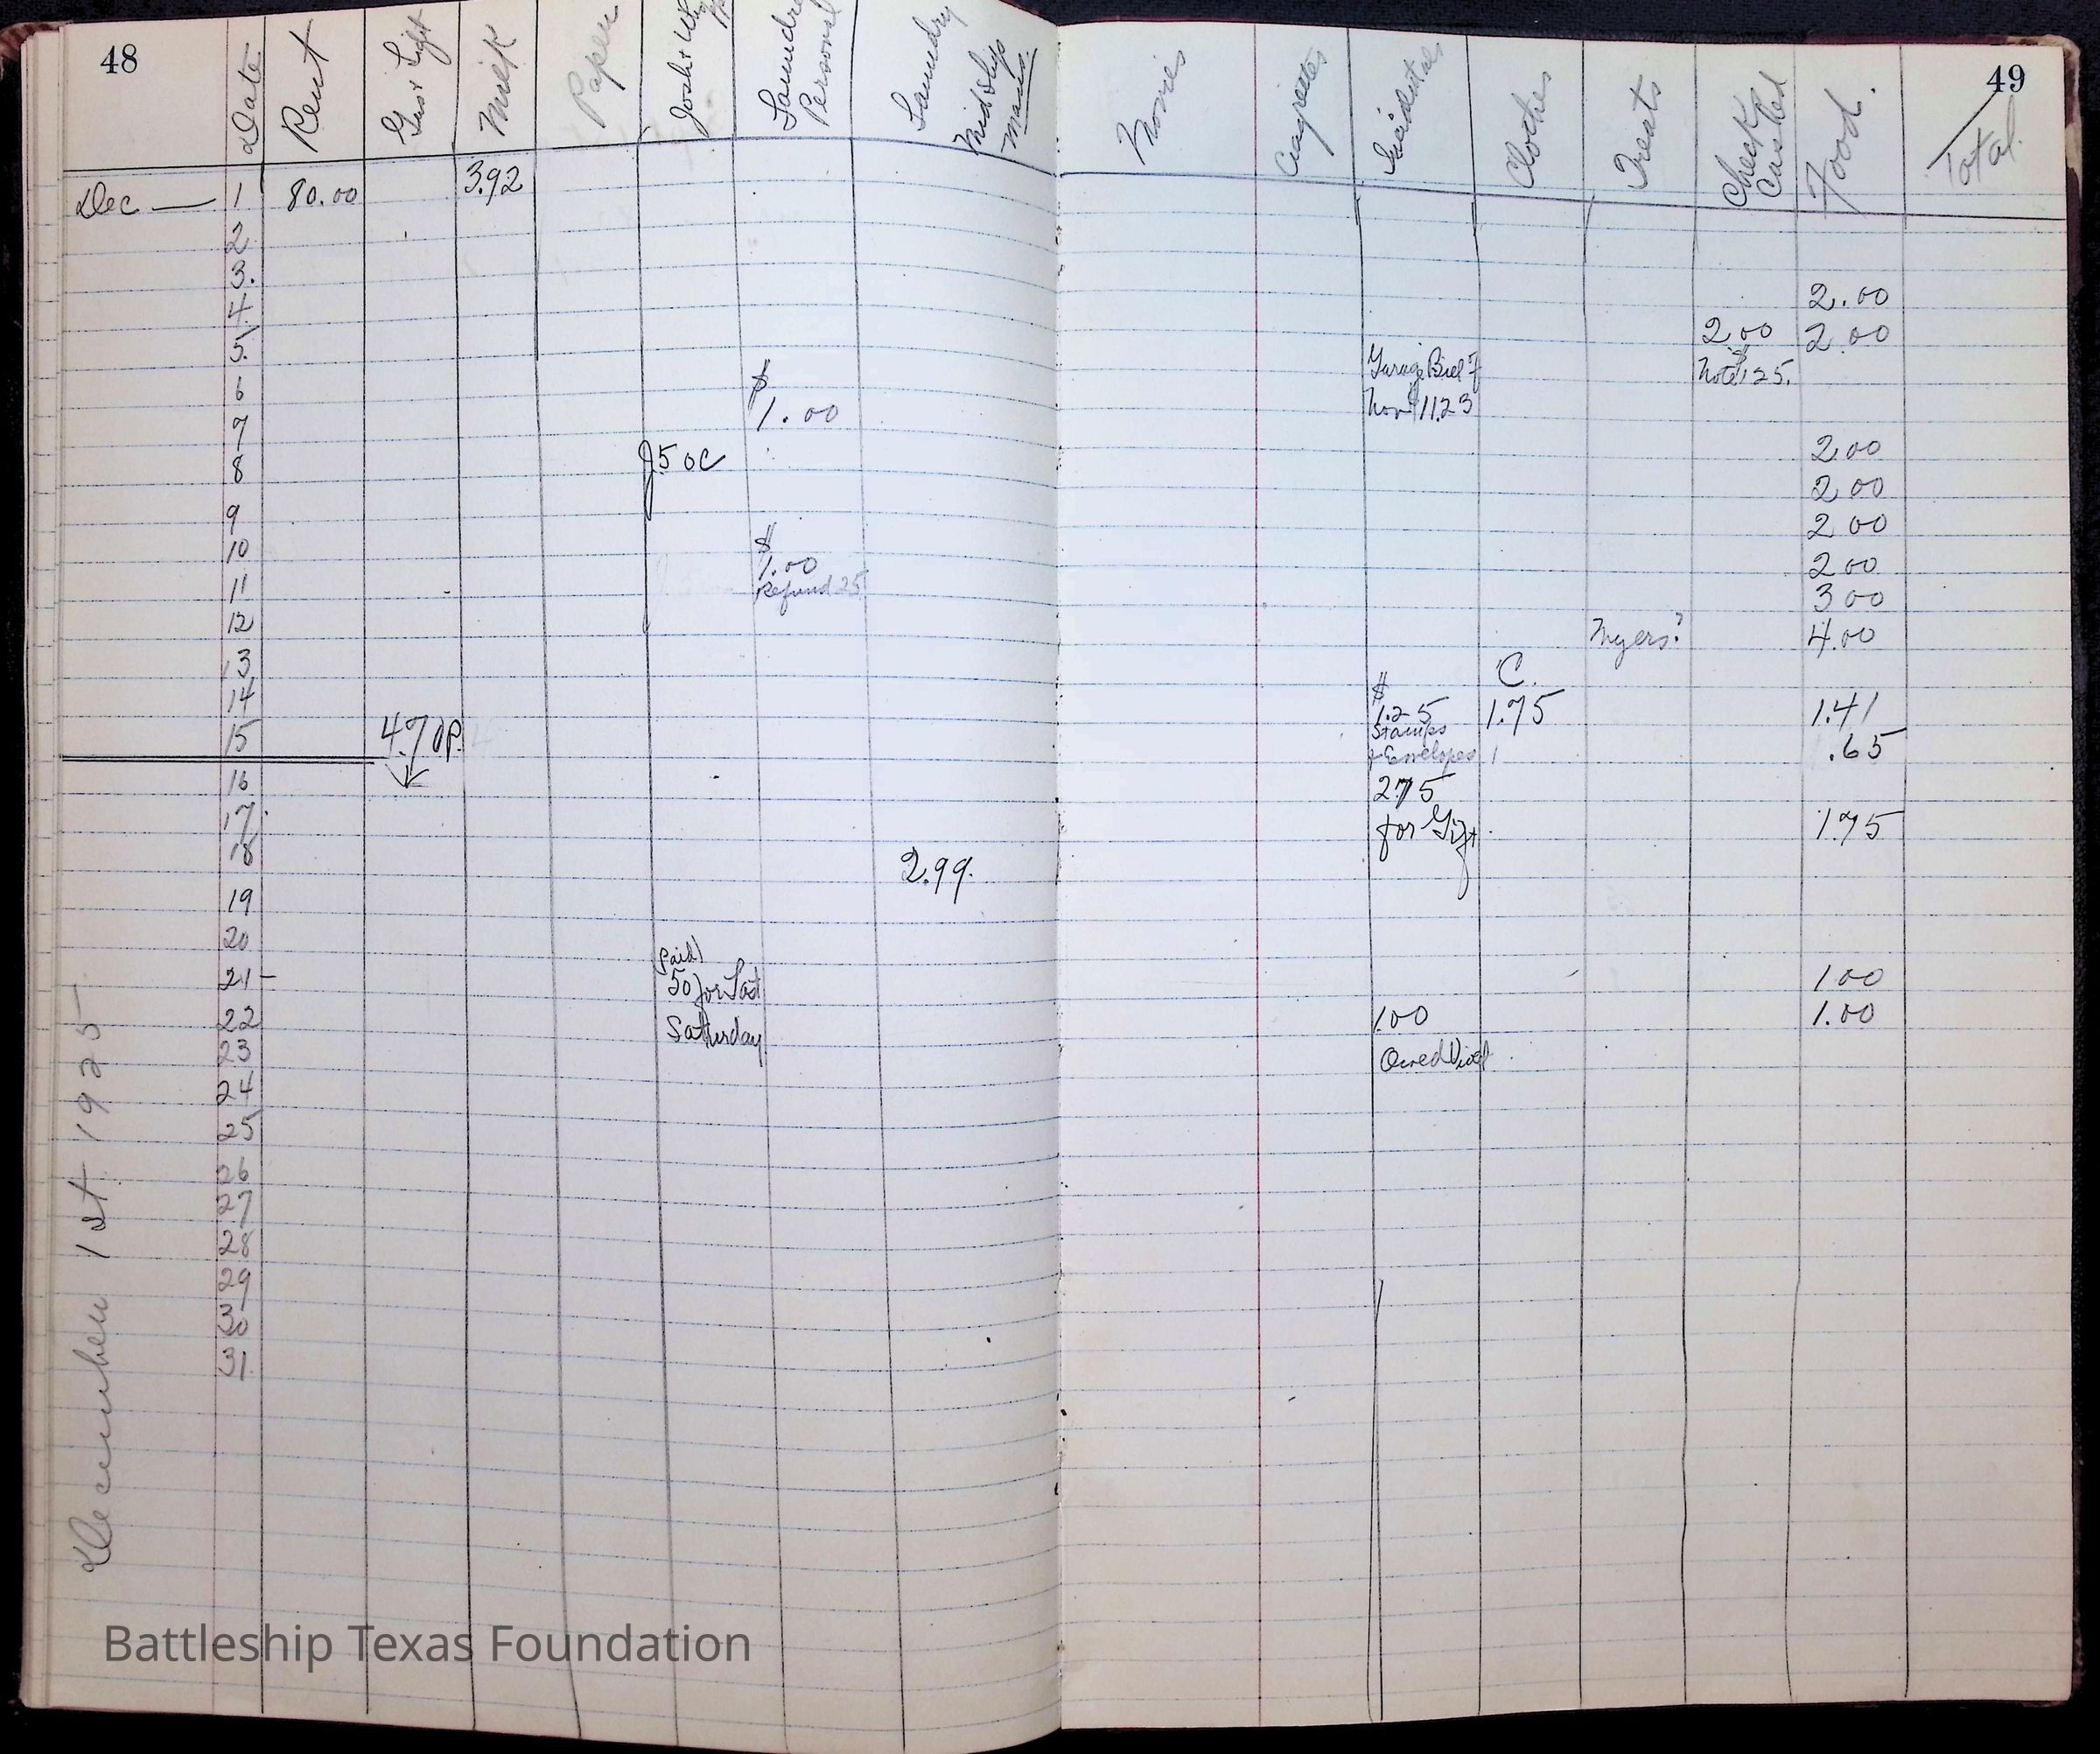 48
49
Date
Rent
Gas & Light
Milk
Paper
Josh &
Laundry Personal
Laundry Midship mans.
Movies
Cigarettes
Incidentals
Clothes
Treats
Check Cashed
Food.
Total.
Dec — 1 80.00 3.92
2
3.
4. 2.00
5. 2.00 2.00
Garage Bill of Note 1.25.
6 $
7 1.00 Nov 11.23
8 J 50c 2.00
9 2.00
10 $ 2.00
11 1.00 2.00
Refund 25 3.00
12 Myers? 4.00
13 C.
14 $ 1.25 1.75 1.41
15 4.70 P. Stamps .65
& Envelopes
16 2.75
17 for Gift. 1.75
18 2.99.
19
20
21 – Paid 1.00
50 for Last
22 Satturday 1.00 1.00
23 Owed
24
25
26
27
28
29
30
31.
December 1st 1925
Battleship Texas Foundation